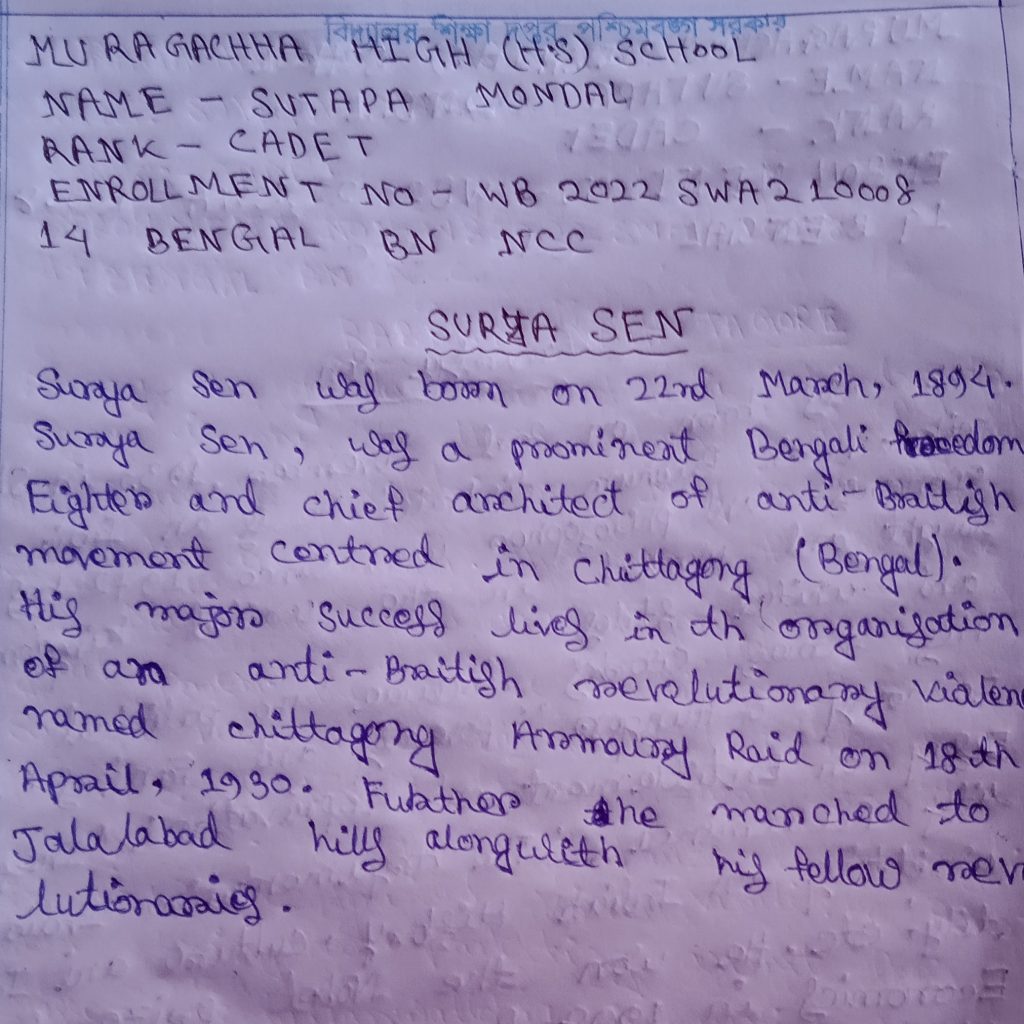 বিদ্যালয় শিক্ষা দপ্তর, পশ্চিমবঙ্গ সরকার
MURAGACHHA HIGH (H.S) SCHOOL
NAME - SUTAPA MONDAL
RANK - CADET
ENROLLMENT NO - WB 2022 SWA210008
14 BENGAL BN NCC
SURYA SEN
Surya Sen was born on 22nd March, 1894.
Surya Sen, was a prominent Bengali freedom
Fighter and chief architect of anti-Braitish
movement centred in Chittagong (Bengal).
His major success lives in th organisation
of an anti-Braitish revolutionary vialen
named chittagong Armoury Raid on 18th
Aprail, 1930. Furather he marched to
Jalalabad hills alongwith his fellow rev
lutionaries.